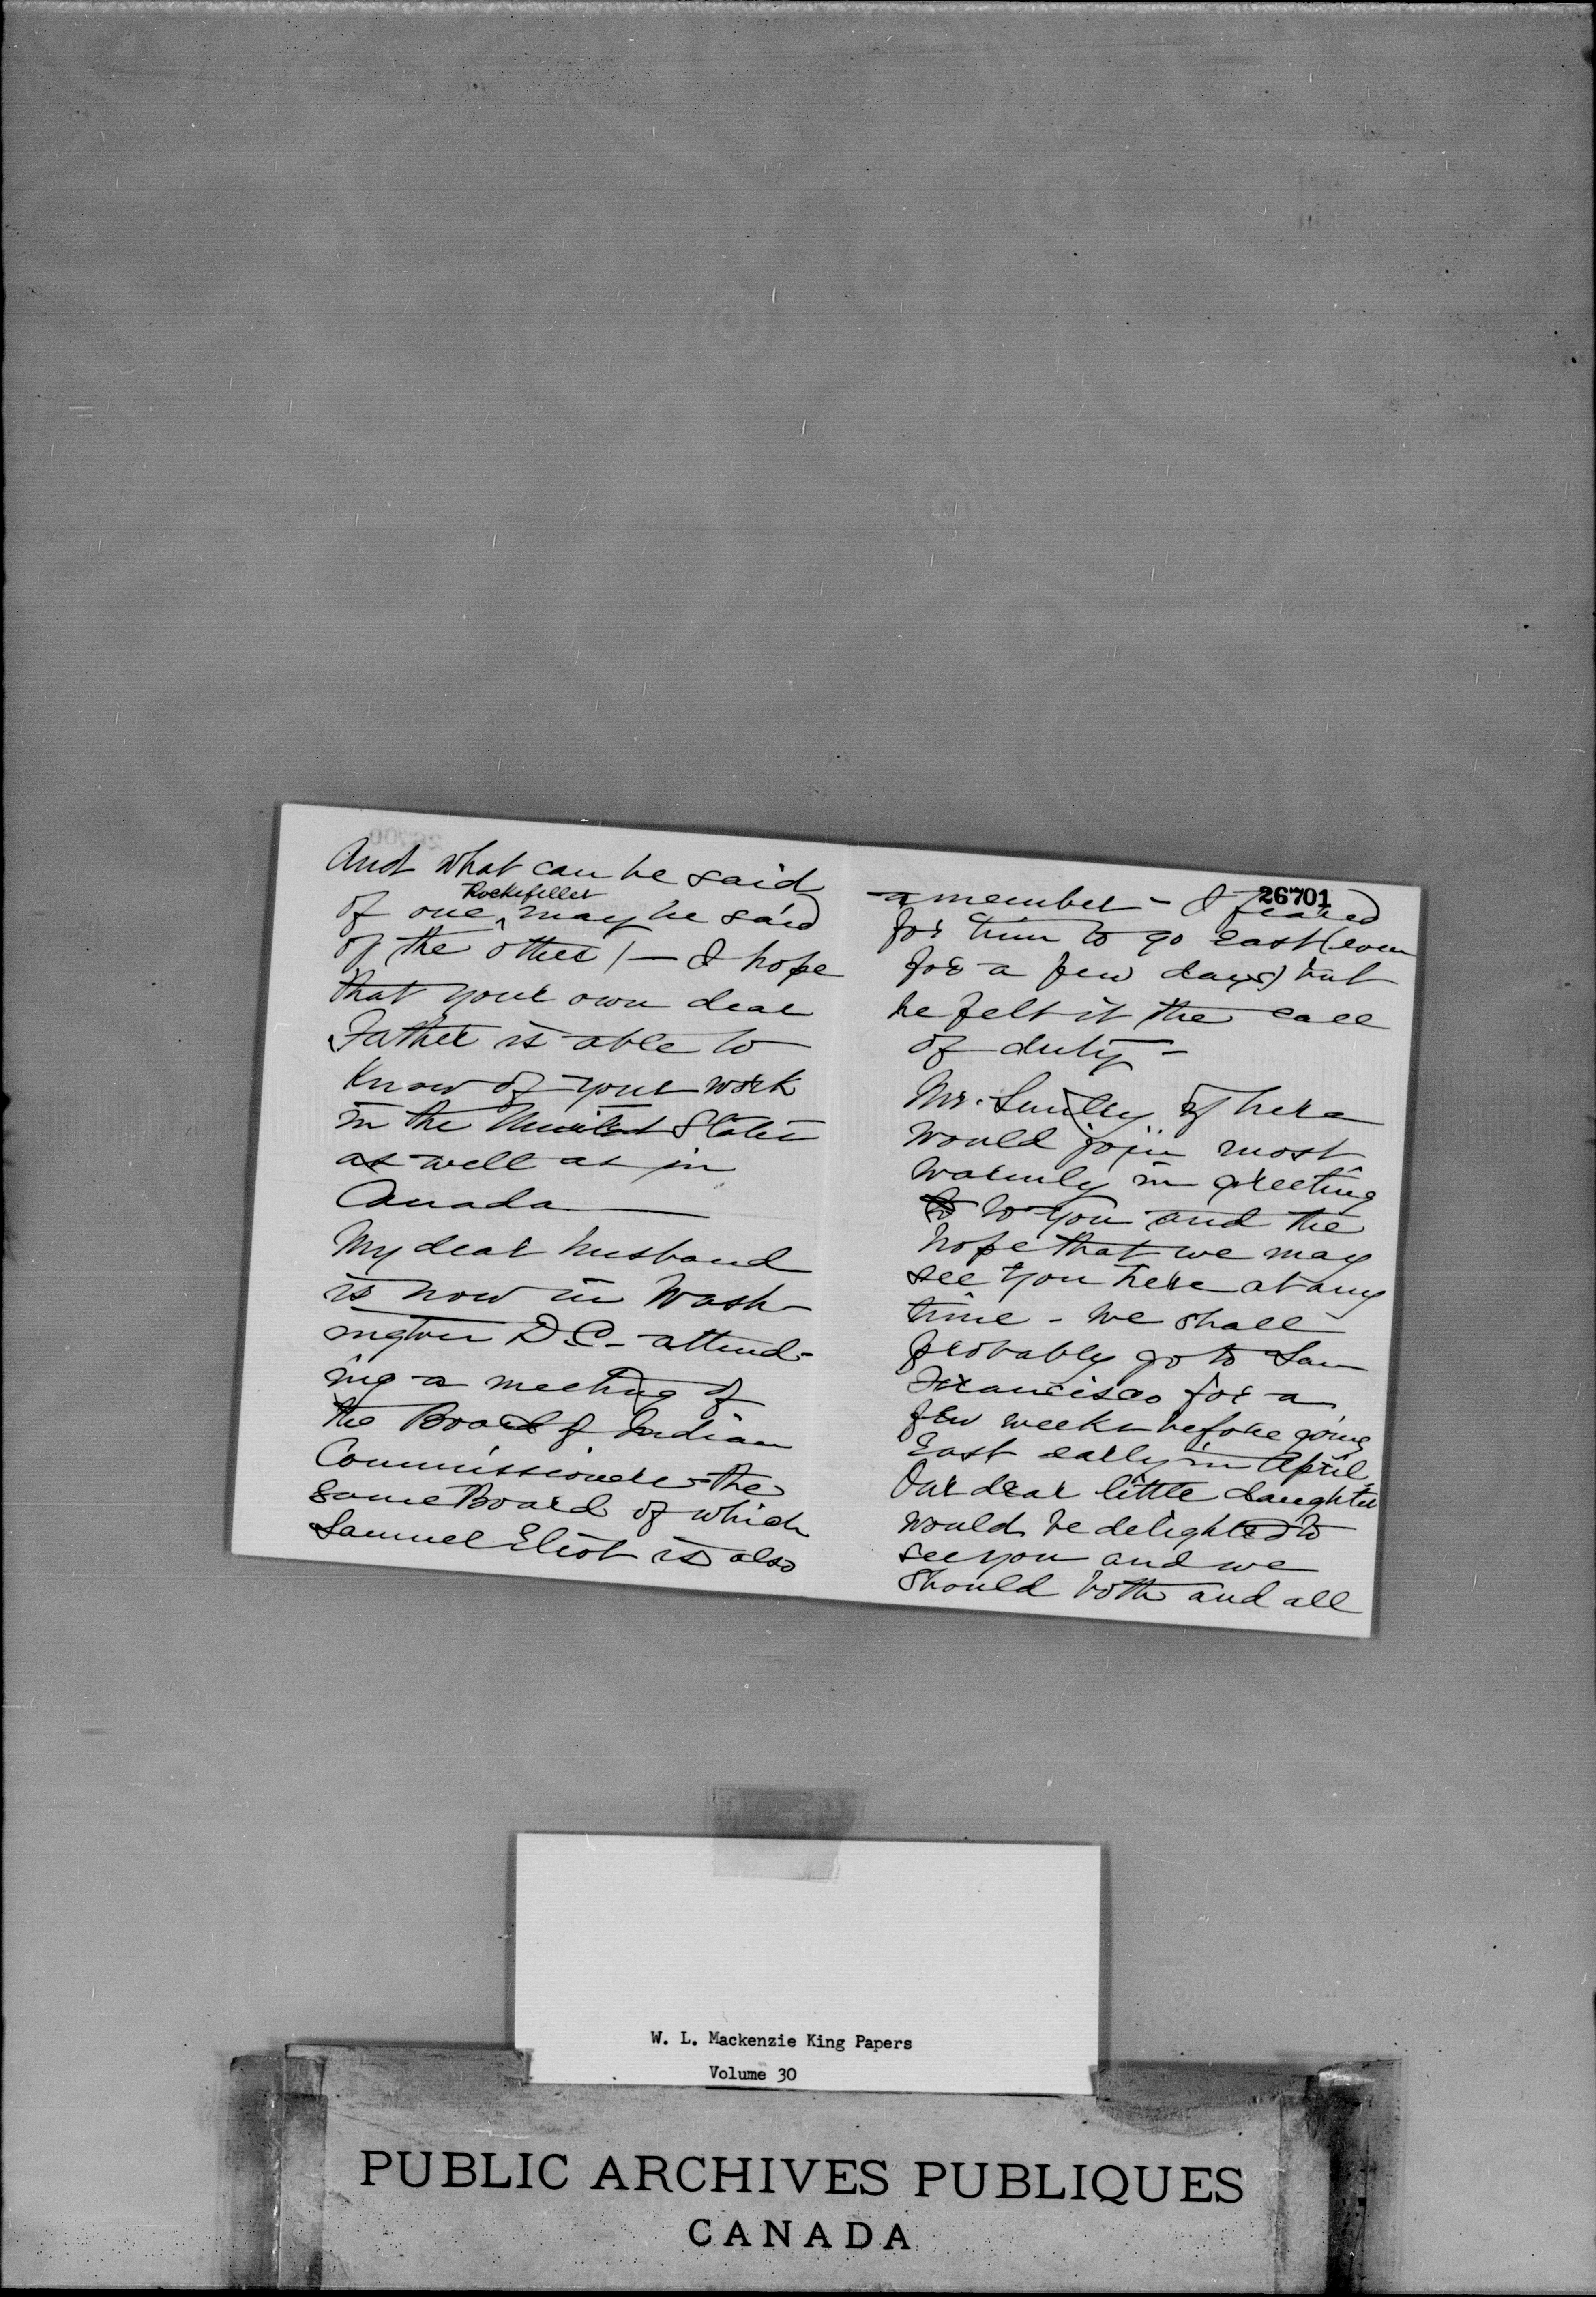 And what can be said
of one ^Rockefeller may be said
of the other! — I hope
that your own dear
Father is able to
know of your work
in the United States
as well as in
Canada —
My dear husband
is now in Wash-
ington D.C. - attend-
ing a meeting of
the Board of Indian
Commissioners - the
same Board of which
Samuel Eliot is also
26701
a member - I feared
for him to go East (even
for a few days) but
he felt it the call
of duty -
Mr. Smiley if here
would join most
warmly in greeting
to you and the
hope that we may
see you here at any
time - We shall
probably go to San
Francisco for a
few weeks before going
East early in April
Our dear little daughter
would be delighted to
see you and we
should both and all
W. L. Mackenzie King Papers
Volume 30
PUBLIC ARCHIVES PUBLIQUES
CANADA